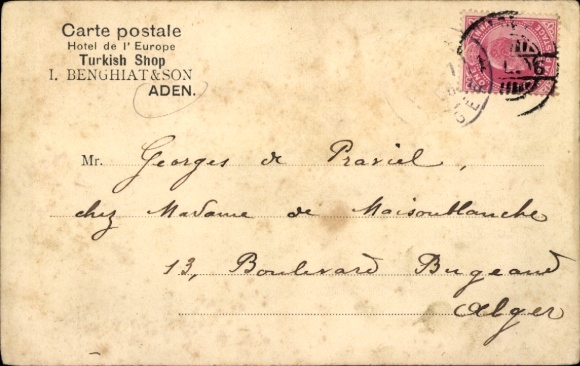 Carte postale
Hotel de l'Europe
Turkish Shop
I. BENGHIAT & SON
ADEN.
Mr. Georges de Praviel,
chez Madame de Maisonblanche
13, Boulevard Bugeaud
Alger